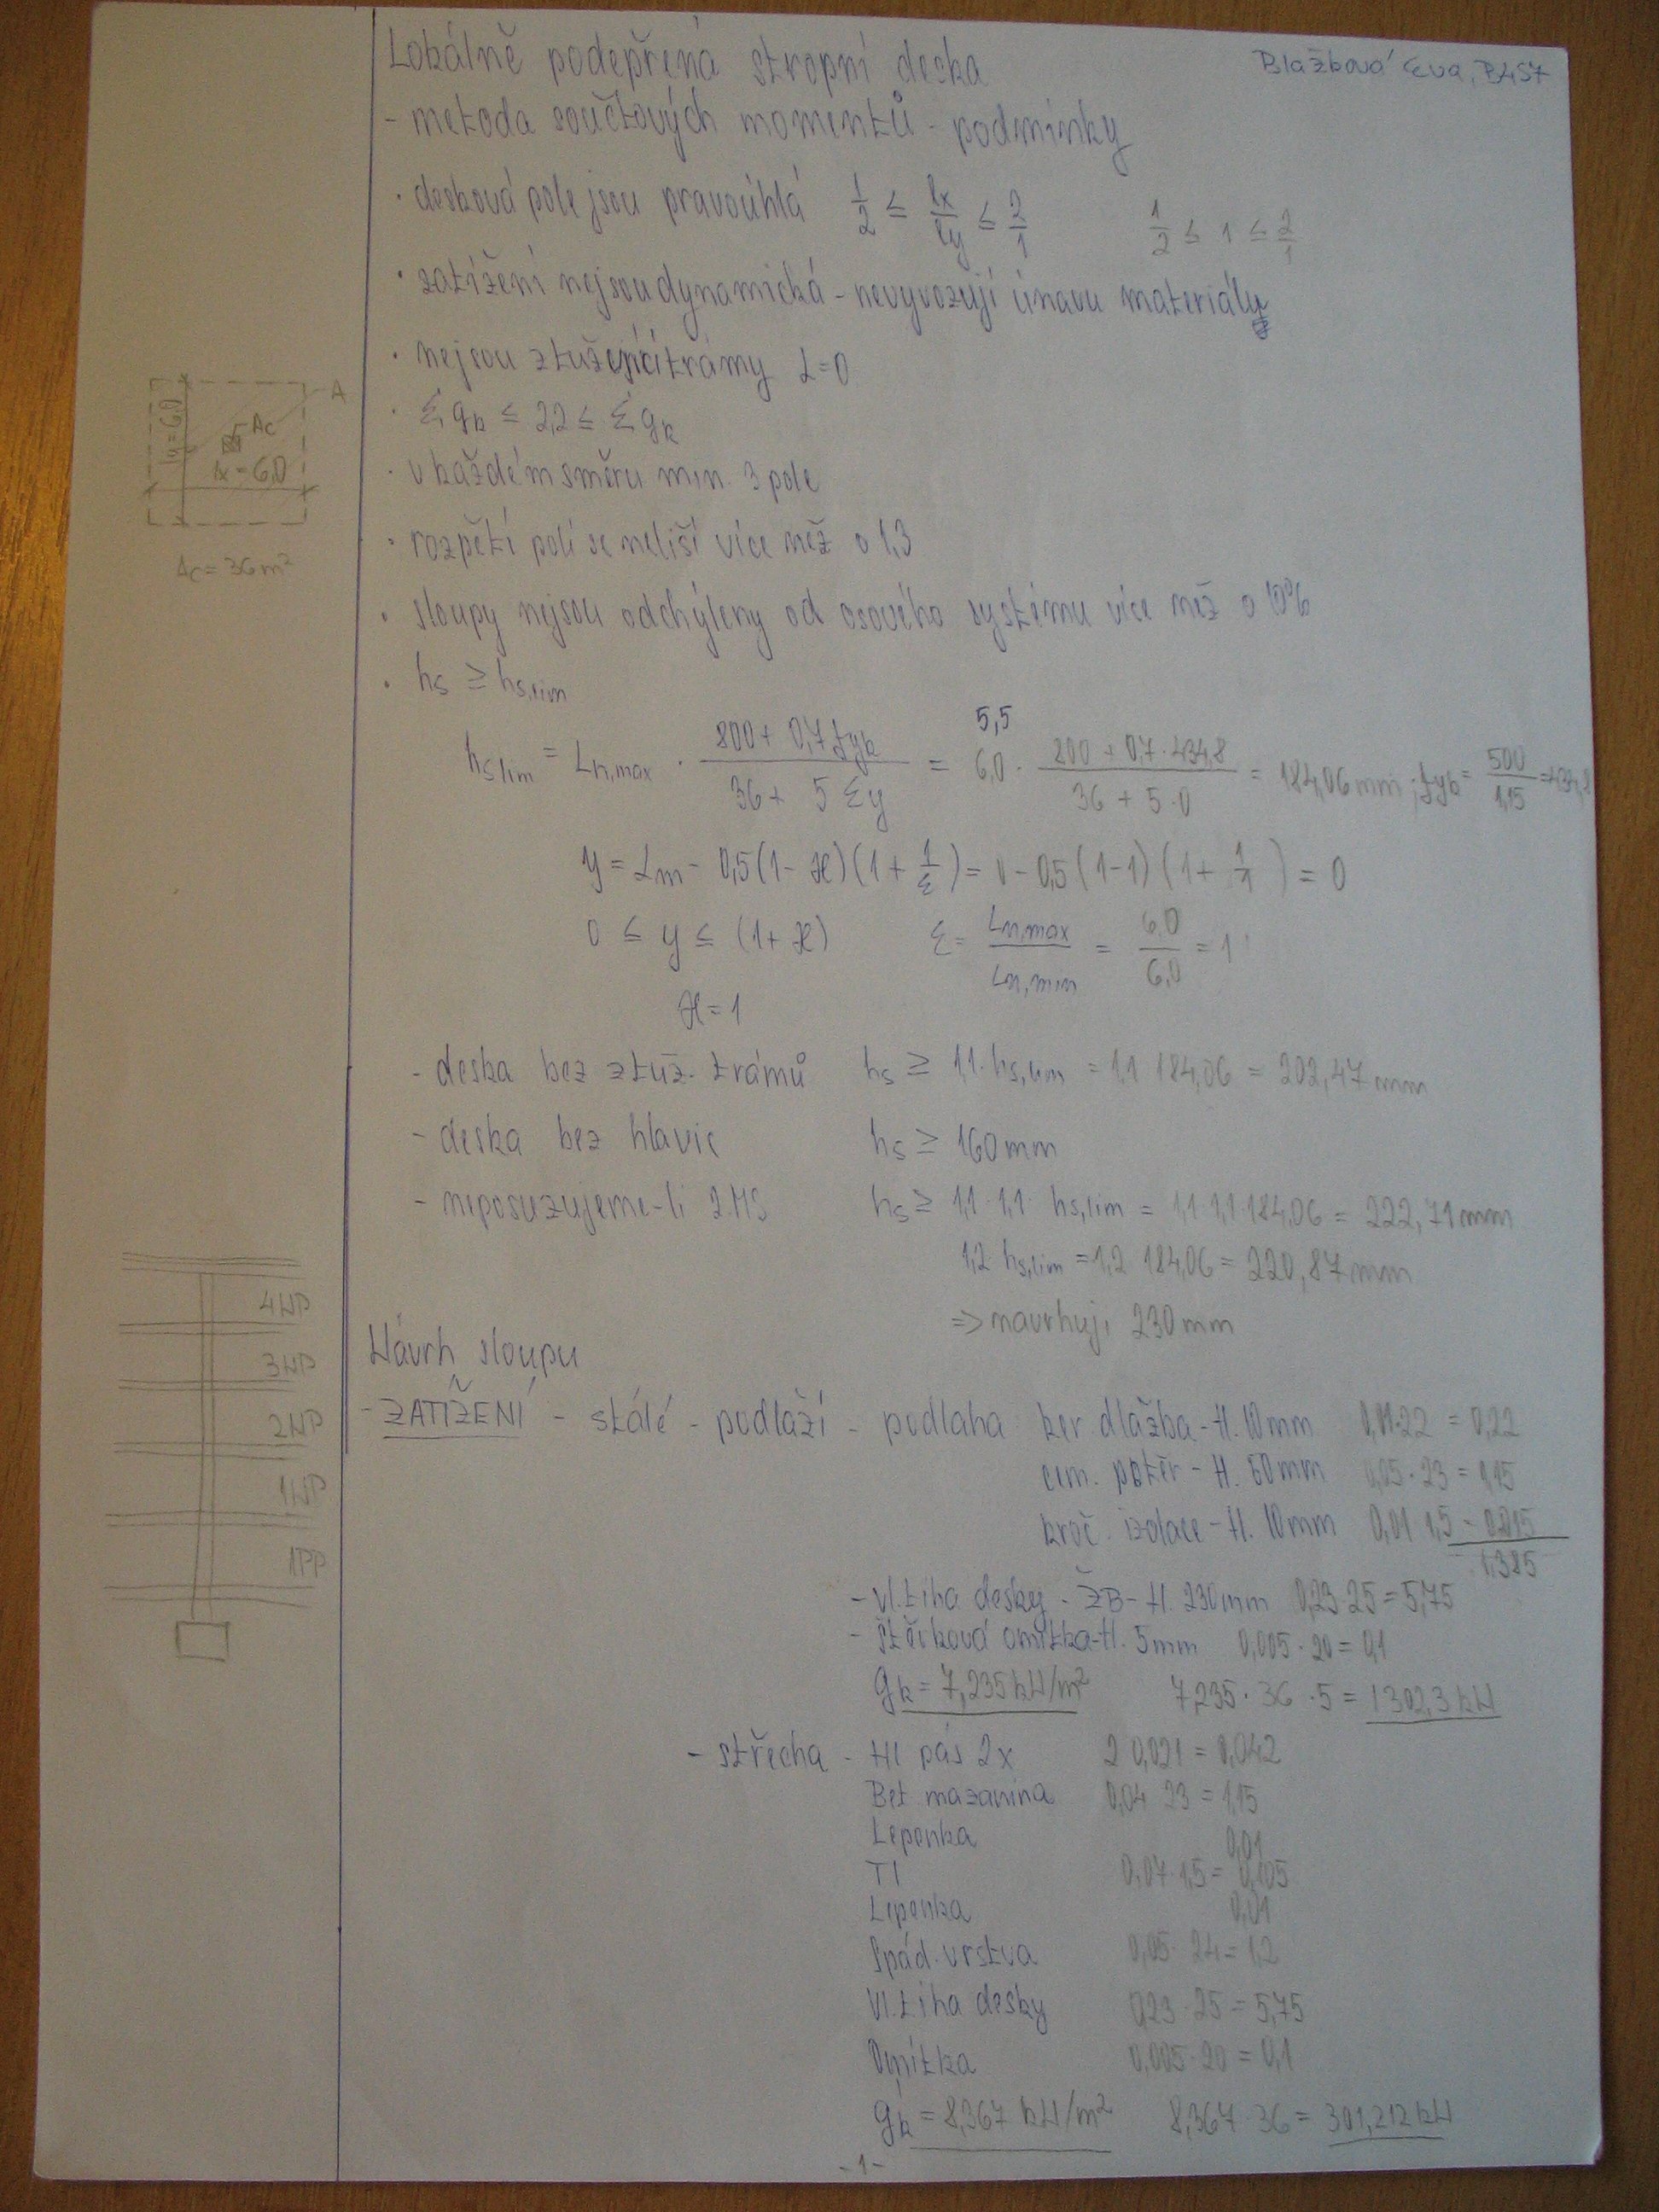 Lokálně podepřená stropní deska
Blažková Eva, B4S7
- metoda součtových momentů - podmínky
· desková pole jsou pravoúhlá 1/2 ≤ lx/ly ≤ 2/1 1/2 ≤ 1 ≤ 2/1
· zatížení nejsou dynamická - nevyvozují únavu materiálu
· nejsou ztužující trámy L=0
· Σgk ≤ 2,2 ≤ Σgk
· v každém směru min. 3 pole
· rozpětí polí se neliší více než o 1,3
· sloupy nejsou odchýleny od osového systému více než o 10%
· hs ≥ hs,lim
hs lim = Ln,max · (800 + 0,7 fyk)/(36 + 5 Σy) = 6,0 · (800 + 0,7·434,8)/(36 + 5·0) = 184,06 mm ; fyk = 500/1,15 = 434,8
5,5
y = Lm - 0,5(1-ϰ)(1+1/ε) = 0 - 0,5(1-1)(1+1/1) = 0
0 ≤ y ≤ (1+ϰ) ε = Ln,max/Ln,min = 6,0/6,0 = 1
ϰ = 1
- deska bez ztuž. trámů hs ≥ 1,1·hs,lim = 1,1 184,06 = 202,47 mm
- deska bez hlavic hs ≥ 160 mm
- neposuzujeme-li 2.MS hs ≥ 1,1·1,1· hs,lim = 1,1·1,1·184,06 = 222,71 mm
1,2 hs,lim = 1,2 184,06 = 220,87 mm
=> navrhuji 230 mm
Návrh sloupu
- ZATÍŽENÍ - stálé - podlaží - podlaha ker. dlažba - tl. 10 mm 0,01·22 = 0,22
cem. potěr - tl. 50 mm 0,05·23 = 1,15
kroč. izolace - tl. 10 mm 0,01 1,5 = 0,015
1,385
- vl. tíha desky - ŽB - tl. 230 mm 0,23·25 = 5,75
- štěrková omítka - tl. 5 mm 0,005·20 = 0,1
gk = 7,235 kN/m² 7,235·36·5 = 1302,3 kN
- střecha - HI pás 2x 2 0,021 = 0,042
Bet mazanina 0,04 23 = 1,15
Lepenka 0,01
TI 0,07·1,5 = 0,105
Lepenka 0,01
Spád. vrstva 0,05·24 = 1,2
Vl. tíha desky 0,23·25 = 5,75
Omítka 0,005·20 = 0,1
gk = 8,367 kN/m² 8,367·36 = 301,212 kN
- 1 -
A
Ac
ly = 6,0
lx = 6,0
Ac = 36 m²
4NP
3NP
2NP
1NP
1PP